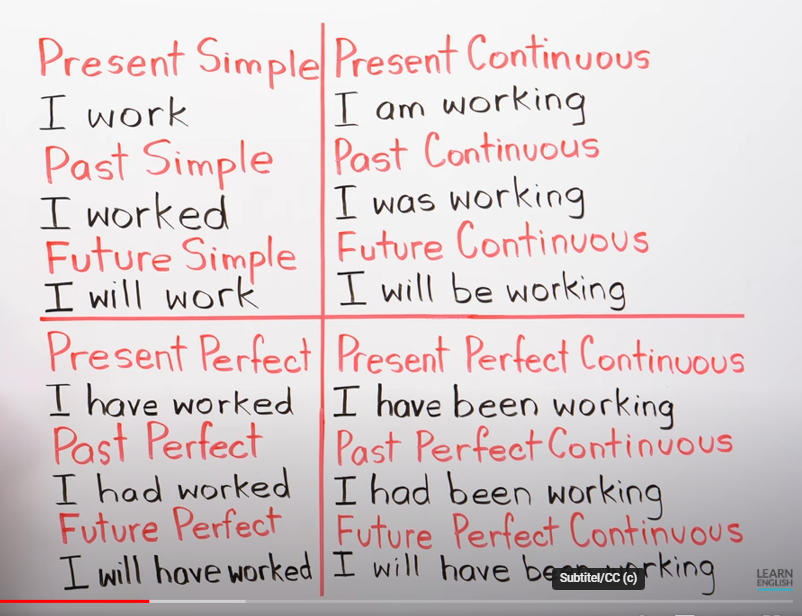 Present Simple
I work
Past Simple
I worked
Future Simple
I will work
Present Continuous
I am working
Past Continuous
I was working
Future Continuous
I will be working
Present Perfect
I have worked
Past Perfect
I had worked
Future Perfect
I will have worked
Present Perfect Continuous
I have been working
Past Perfect Continuous
I had been working
Future Perfect Continuous
I will have been working
Subtitel/CC (c)
LEARN
ENGLISH